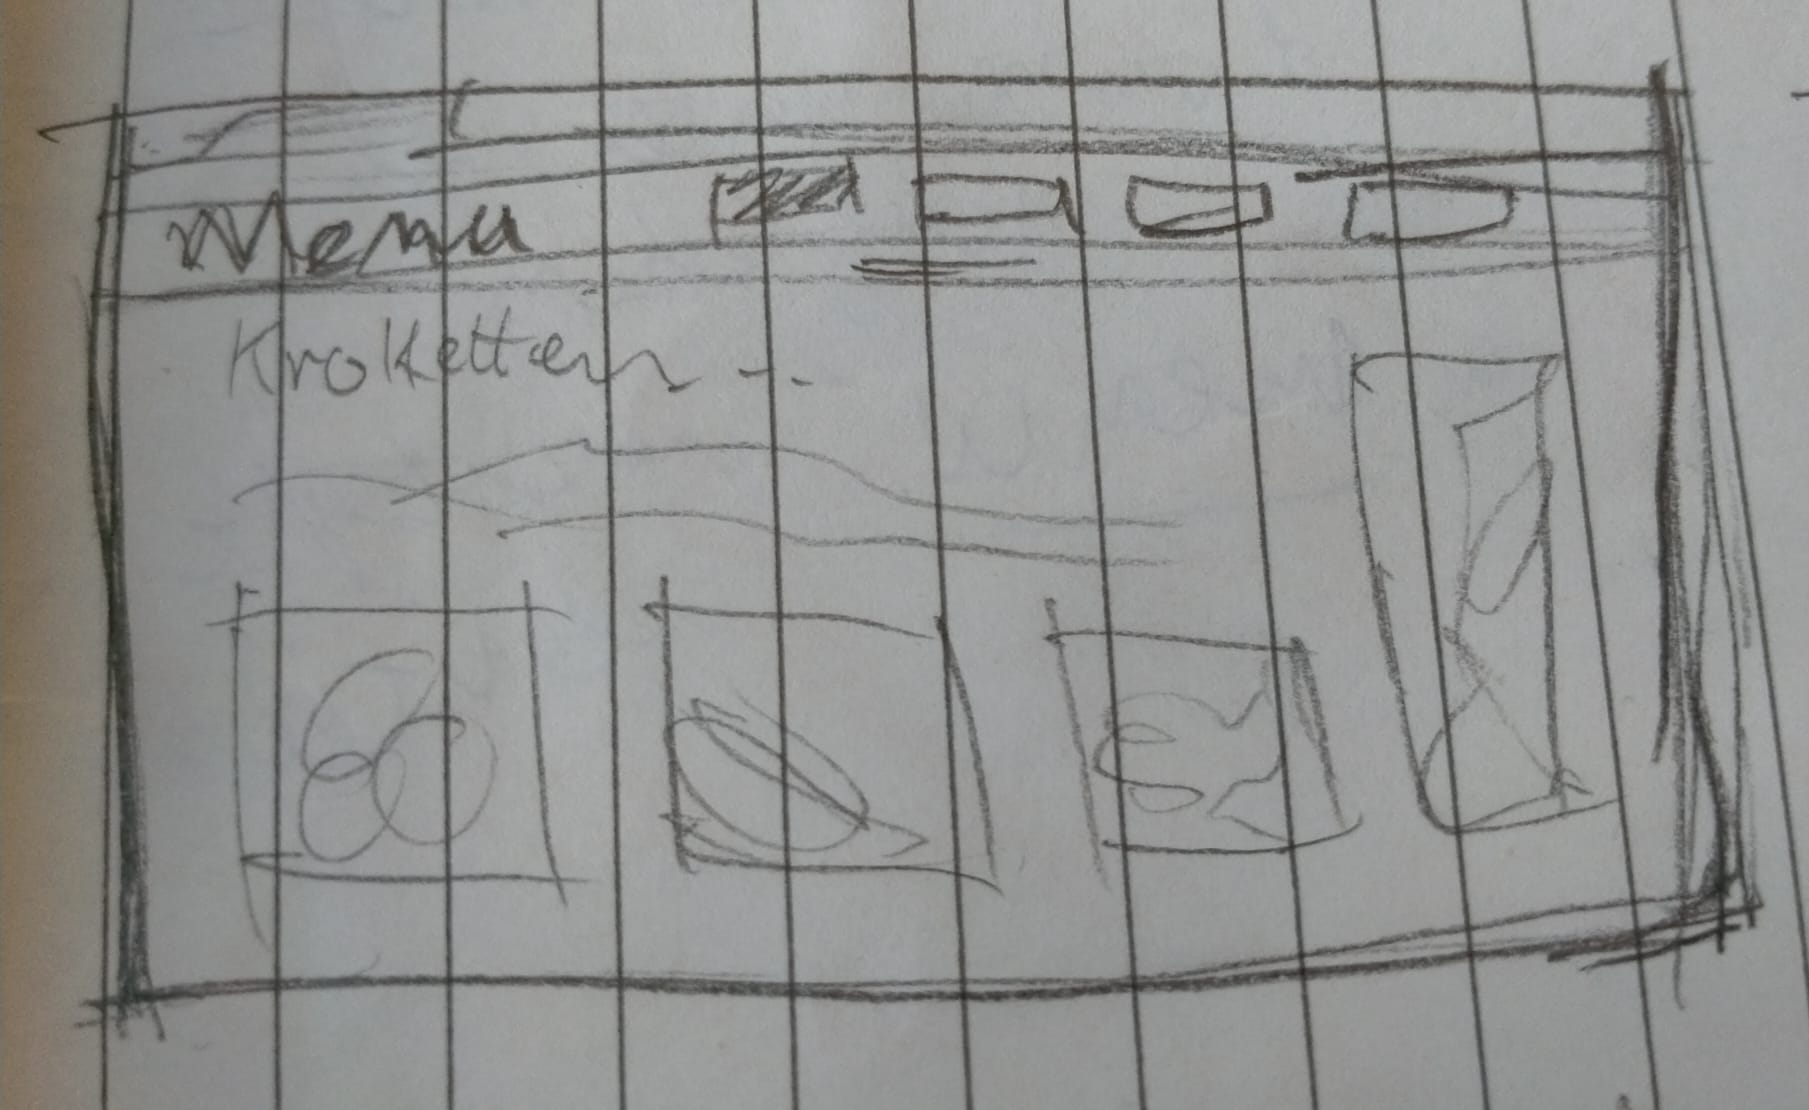 Menu
Kroketten --